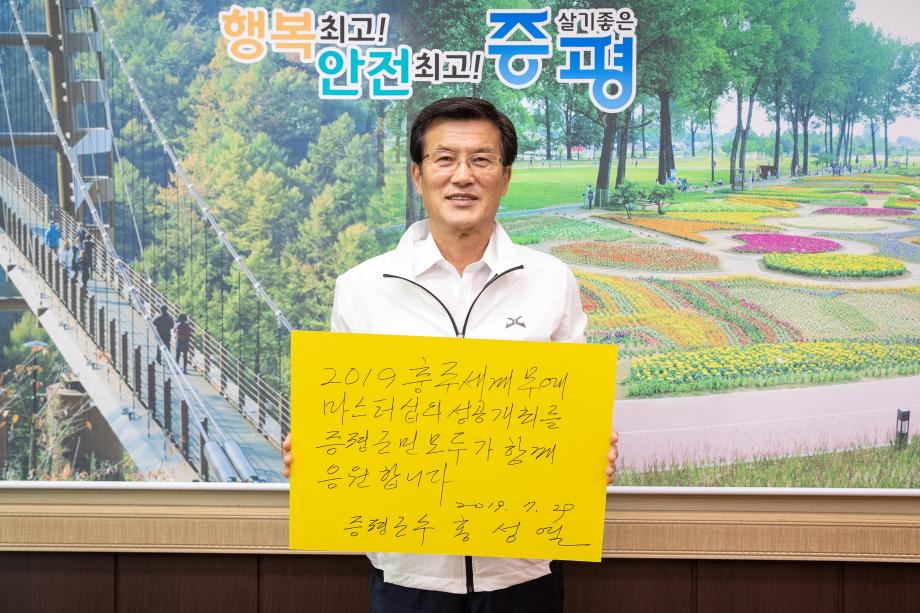 행복최고! 살기좋은
안전최고! 증평
2019 충주세계무예
마스터십의 성공개최를
증평군민 모두가 함께
응원합니다
2019. 7. 29
증평군수 홍성열